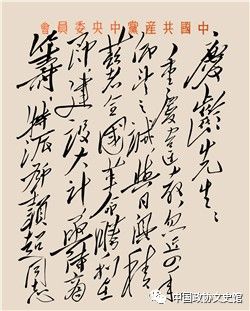 中國共產黨中央委員會
慶齡先生：
重慶違教，忽近四年。
仰望之誠，與日俱積。
茲者全國革命勝利在
即，建設大計，亟待商
籌，特派鄧穎超同志
中国政协文史馆